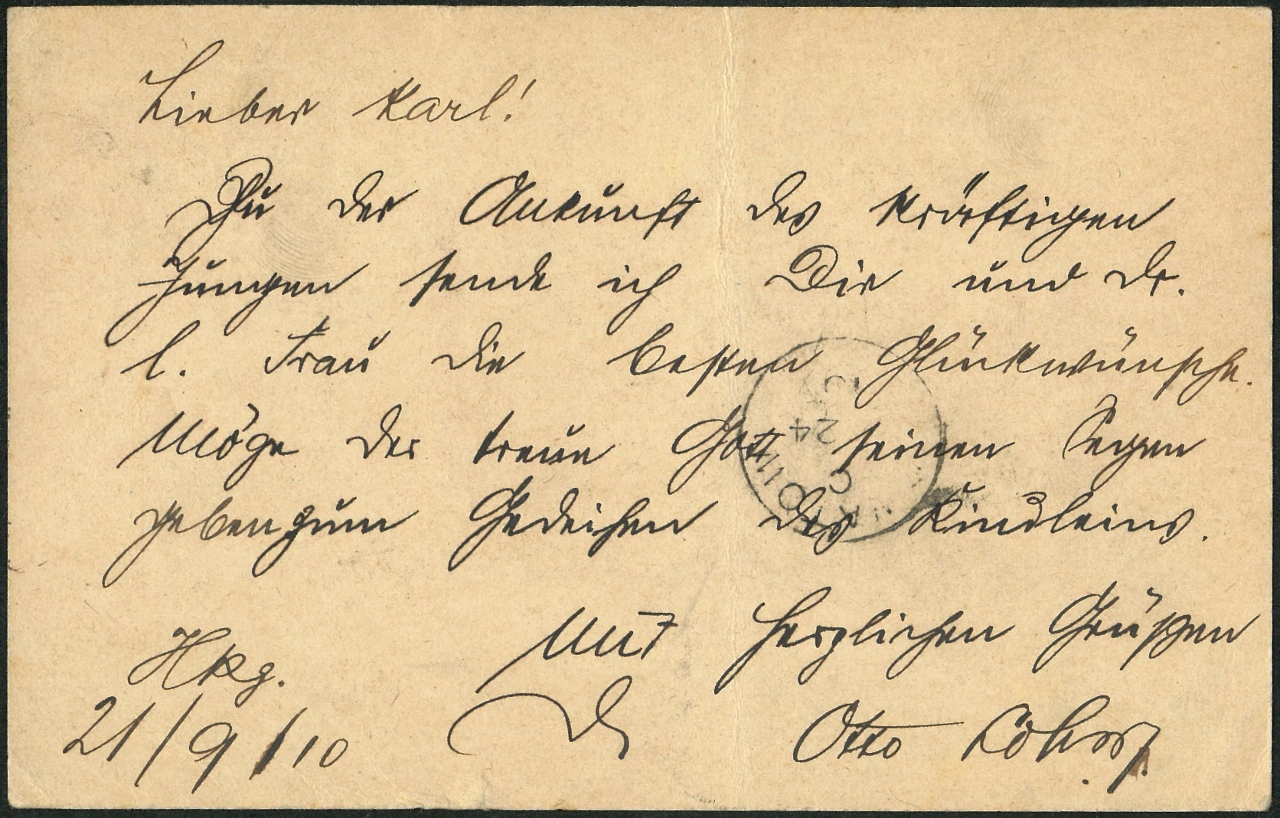 Lieber Karl!
Zu der Ankunft des kräftigen
Jungen sende ich Dir und Dr.
l. Frau die besten Glückwünsche.
Möge der treue Gott seinen Segen
geben zum Gedeihen des Kindleins.
Mit herzlichen Grüßen
Hkg.
21/9/10
Otto
24
C